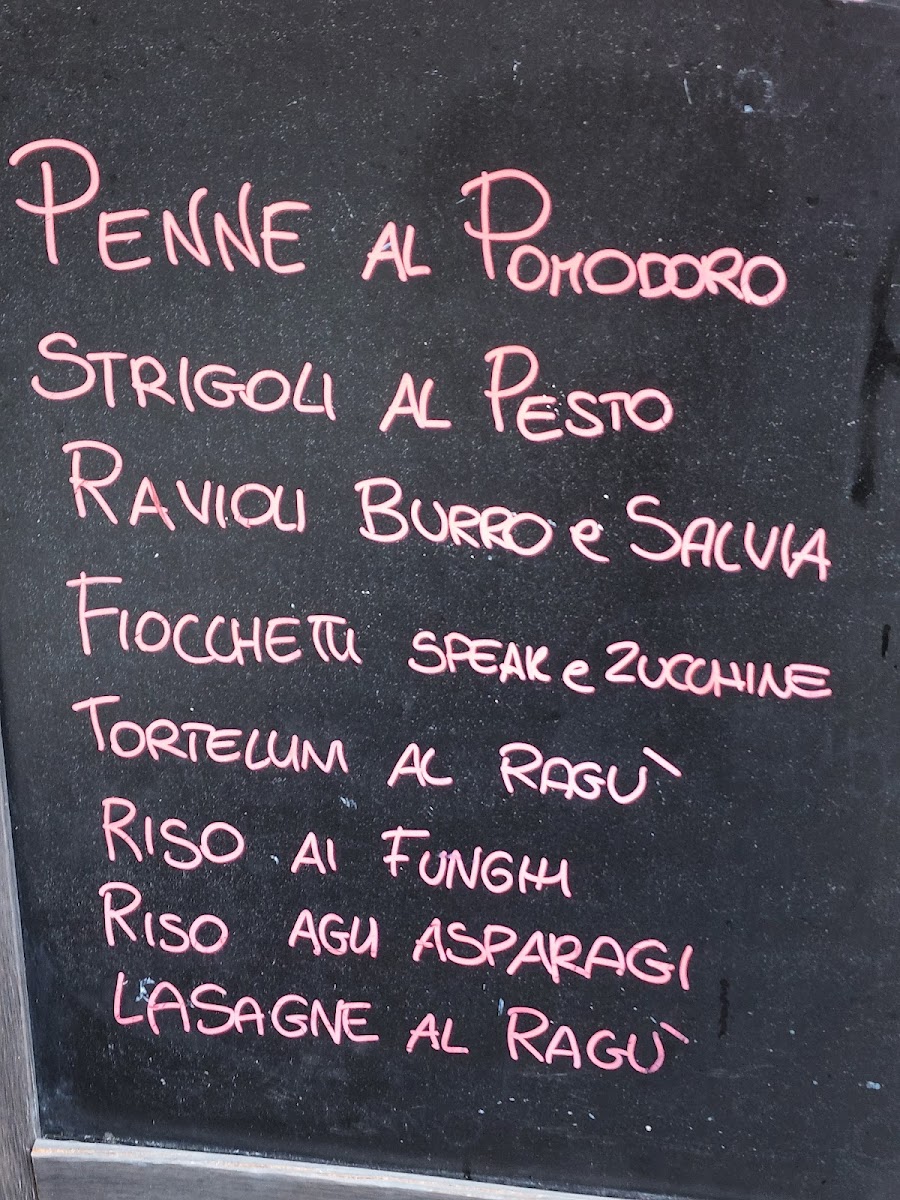 PENNE AL POMODORO
STRIGOLI AL PESTO
RAVIOLI BURRO e SALVIA
FIOCCHETTI SPEAK e ZUCCHINE
TORTELLINI AL RAGÙ
RISO AI FUNGHI
RISO AGLI ASPARAGI
LASAGNE AL RAGÙ